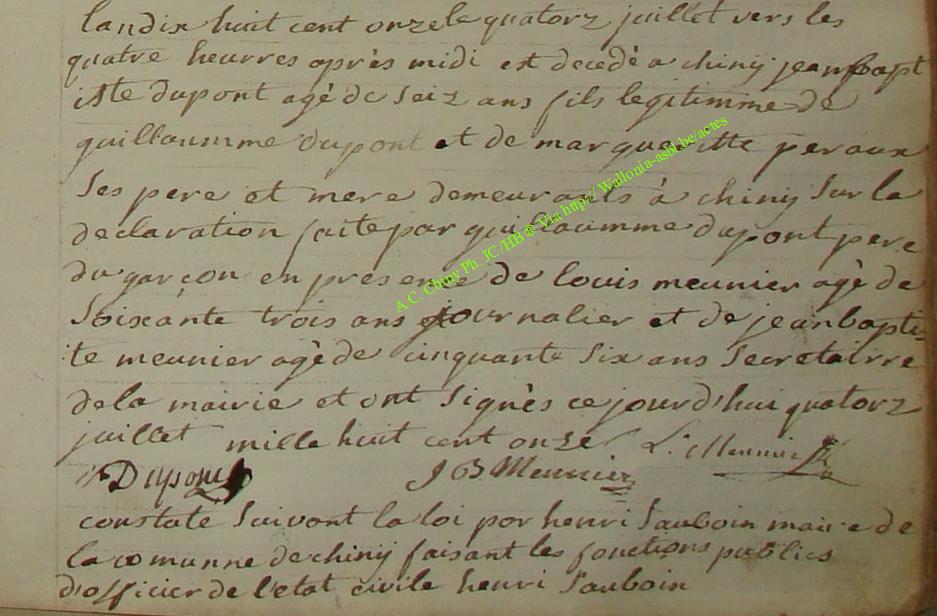 landix huit cent onze le quatorz juillet vers les
quatre heurres après midi est decedè a chiny jean bapt
iste dupont agè de seiz ans fils legitimme de
guillaumme dupont et de margueritte peraux
ses pere et mere demeurants à chiny sur la
declaration faite par guillaumme dupont pere
du garçon en presences de louis meunier agè de
soixante trois ans journalier et de jean bapti
te meunier agè de cinquante six ans secretairre
de la mairie et ont signès ce jourd'hui quatorz
juillet mille huit cent onze L. Meunier
Dupont J B Meunier
constate suivant la loi par henri Sauboin maire de
la comunne de chiny faisant les fonctions publics
d'officier de l'etat civile henri Sauboin
A.C. Chiny Ph. JC /HB @ Via http:// Wallonia-asbl.be/actes